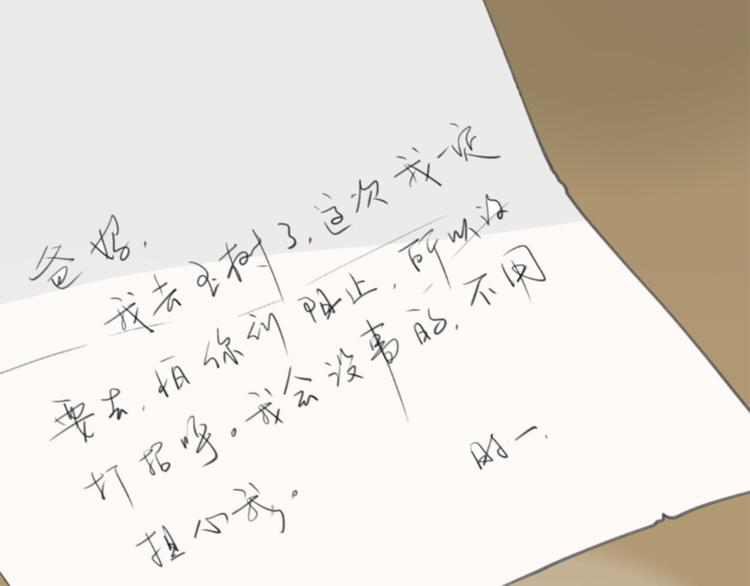 爸妈.
我去玉树了,这次我一定
要去,怕你们阻止,所以没
打招呼。我会没事的,不用
担心我。
时一.